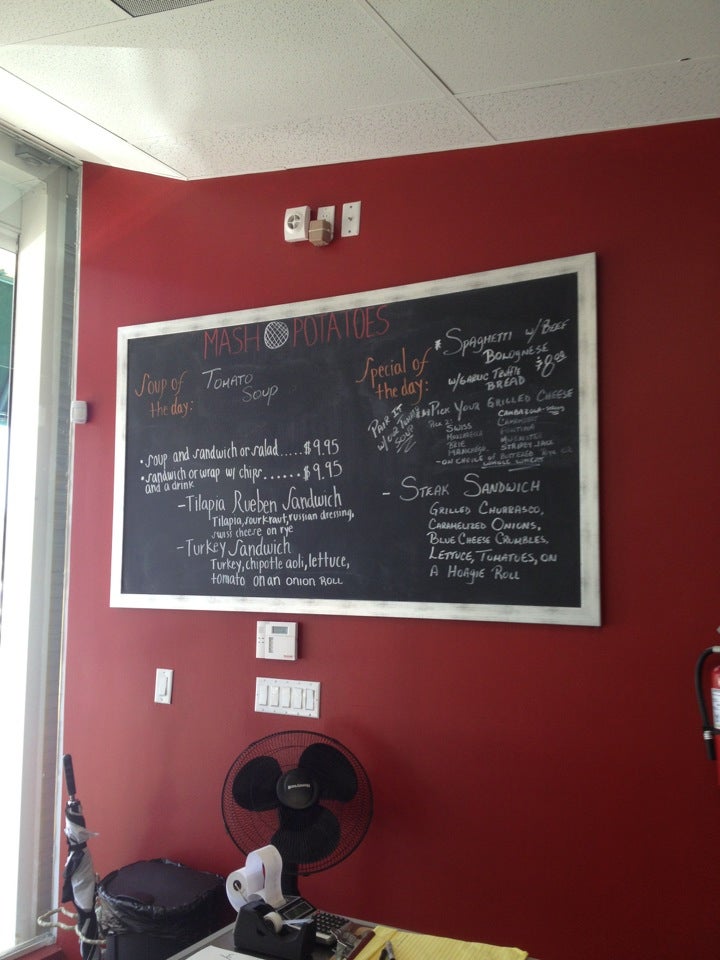 MASH POTATOES
Soup of
the day:
TOMATO
SOUP
• Soup and Sandwich or Salad.....$9.95
• Sandwich or Wrap w/ chips......$9.95
and a drink
- Tilapia Rueben Sandwich
Tilapia, sourkraut, russian dressing,
swiss cheese on rye
- Turkey Sandwich
Turkey, chipotle aoli, lettuce,
tomato on an ONION ROLL
Special of
the day:
* SPAGHETTI w/ BEEF
BOLOGNESE
w/ GARLIC
BREAD
PAIR IT
SOUP
PICK YOUR GRILLED CHEESE
SWISS
BRIE
MANCHEGO
FONTINA
MUENSTER
- ON CHOICE of BUTTERED RYE OR
WHOLE WHEAT
- STEAK SANDWICH
GRILLED CHURRASCO,
CARMELIZED ONIONS,
BLUE CHEESE CRUMBLES,
LETTUCE, TOMATOES, ON
A HOAGIE ROLL
Honeywell